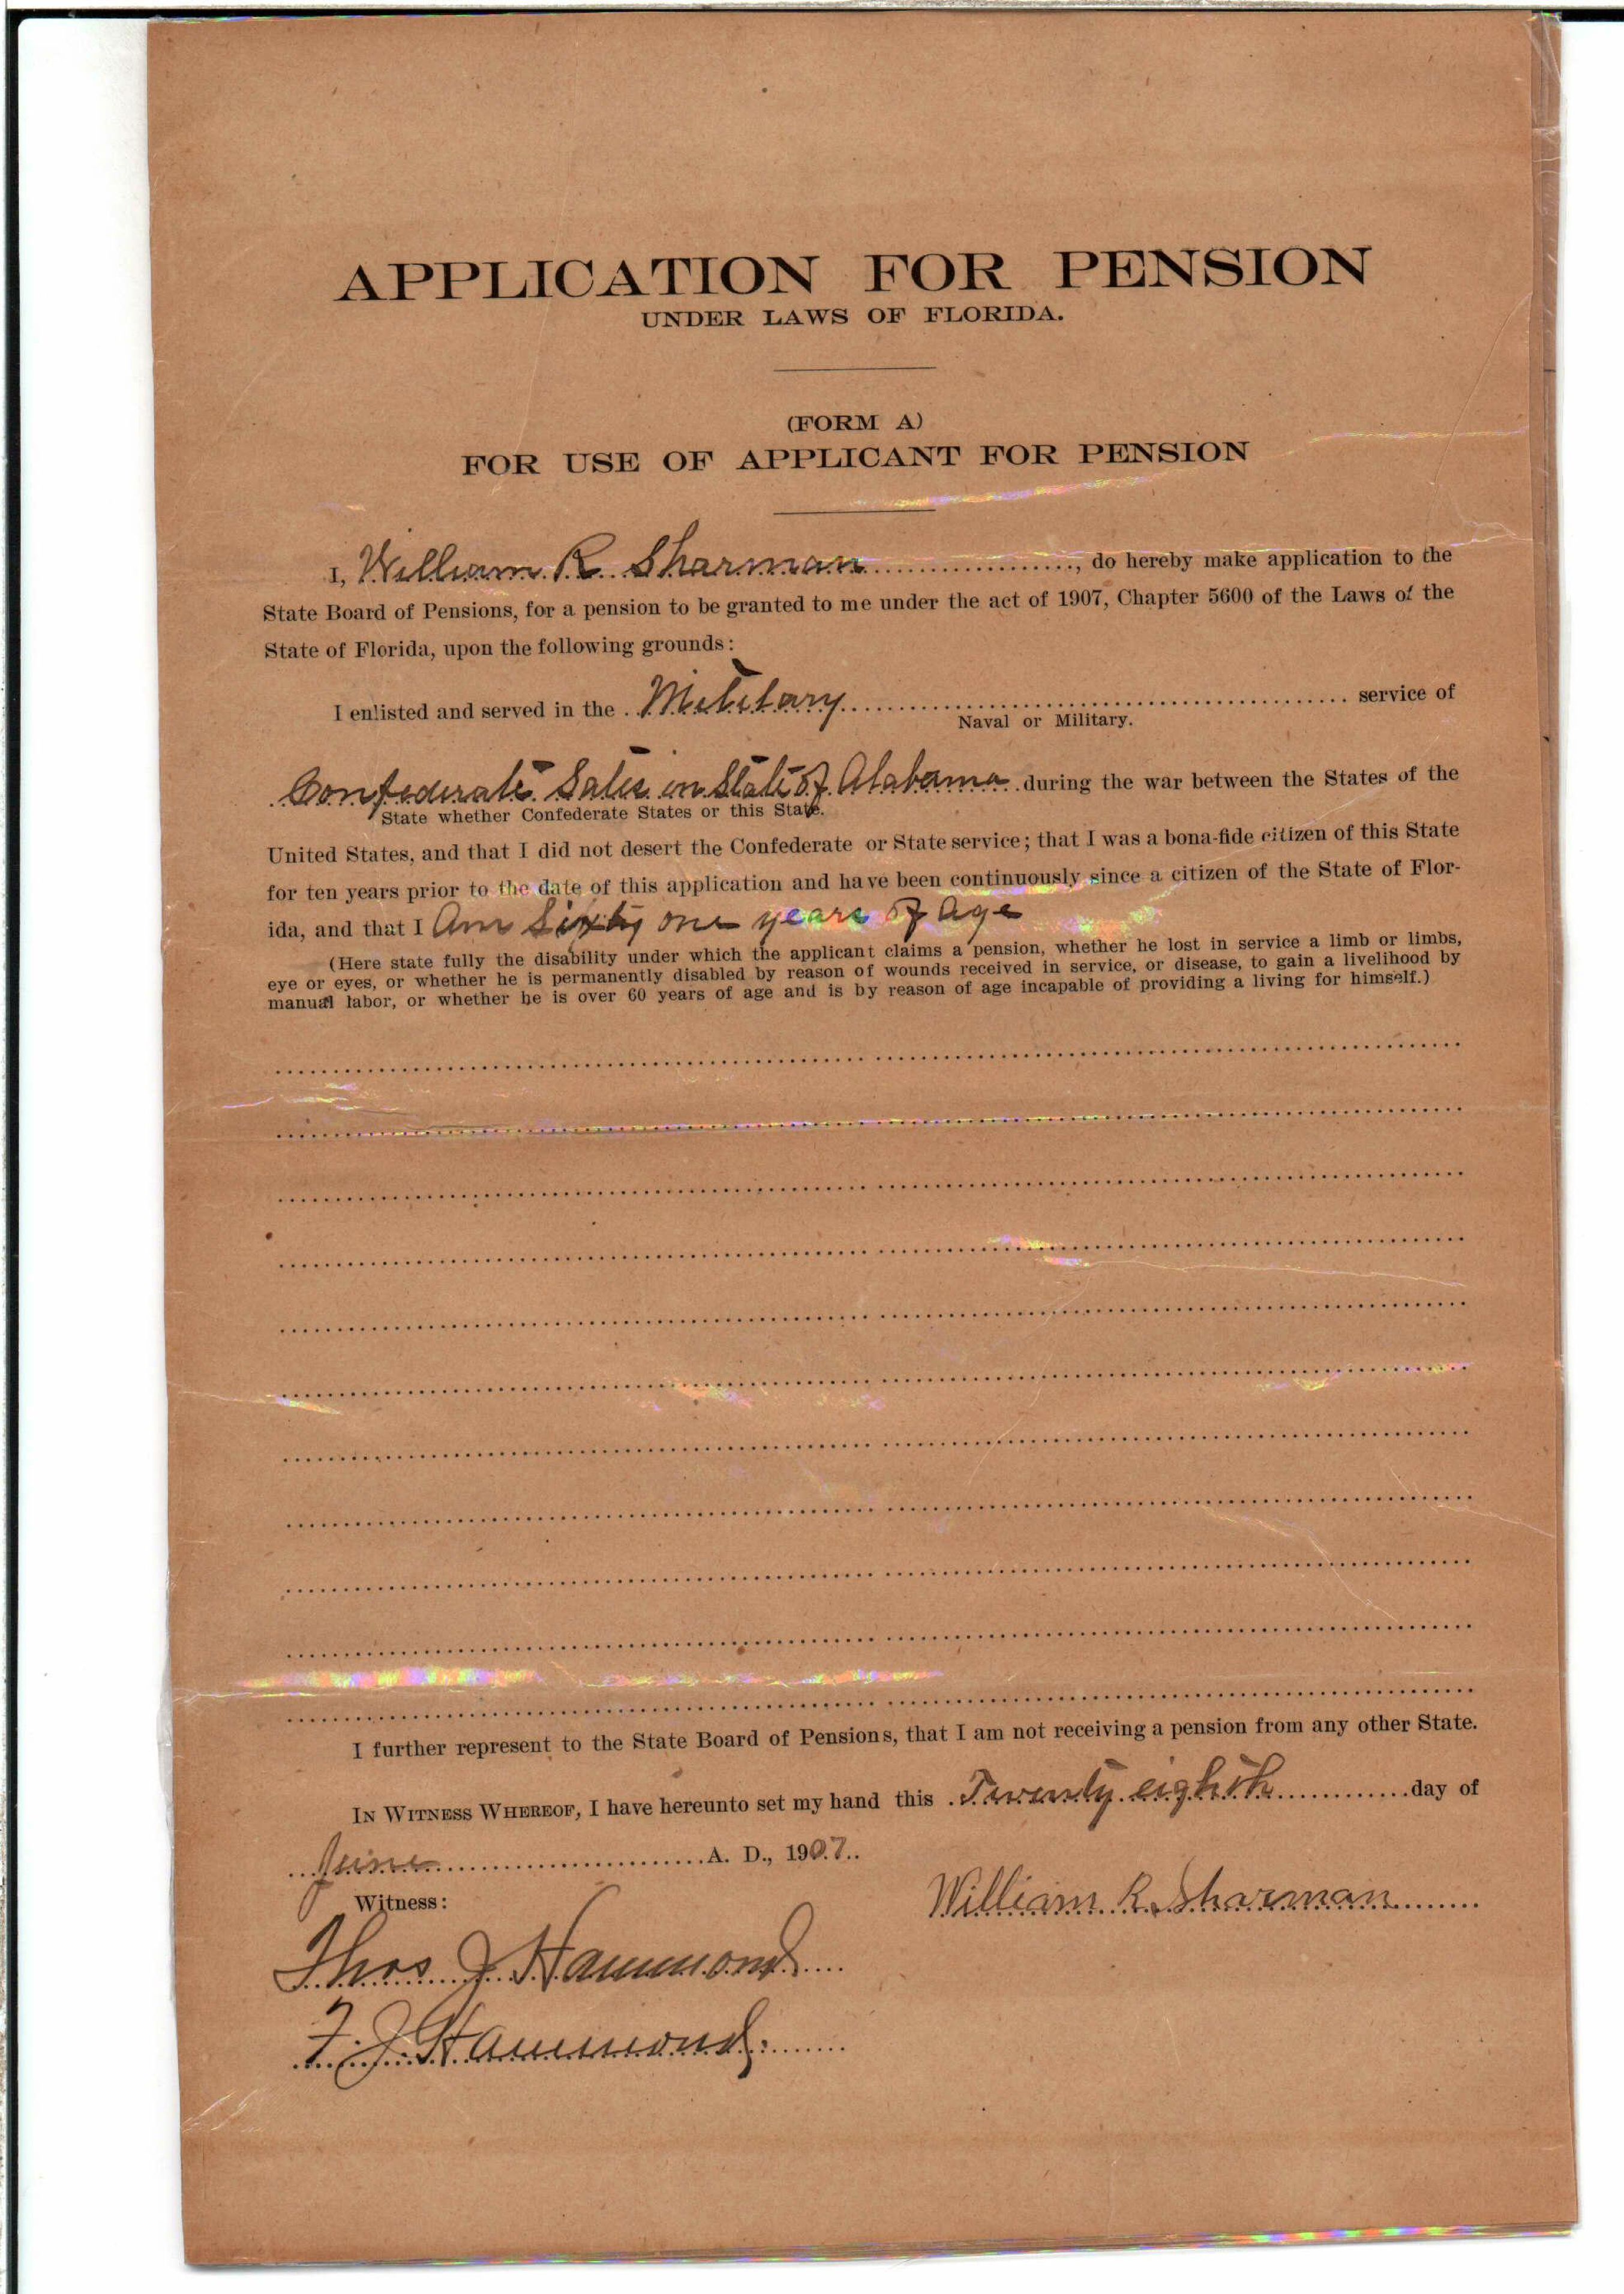 APPLICATION FOR PENSION
UNDER LAWS OF FLORIDA.
(FORM A)
FOR USE OF APPLICANT FOR PENSION
I, William R Sharman, do hereby make application to the
State Board of Pensions, for a pension to be granted to me under the act of 1907, Chapter 5600 of the Laws of the
State of Florida, upon the following grounds:
I enlisted and served in the Military service of
Naval or Military.
Confederate Sates in State of Alabama during the war between the States of the
State whether Confederate States or this State.
United States, and that I did not desert the Confederate or State service; that I was a bona-fide citizen of this State
for ten years prior to the date of this application and have been continuously since a citizen of the State of Flor-
ida, and that I Am Sixty one years of age
(Here state fully the disability under which the applicant claims a pension, whether he lost in service a limb or limbs,
eye or eyes, or whether he is permanently disabled by reason of wounds received in service, or disease, to gain a livelihood by
manual labor, or whether he is over 60 years of age and is by reason of age incapable of providing a living for himself.)
I further represent to the State Board of Pensions, that I am not receiving a pension from any other State.
IN WITNESS WHEREOF, I have hereunto set my hand this Twenty eighth day of
June A. D., 1907.
Witness:
William R. Sharman
Thos J Hammond
F. J. Hammond